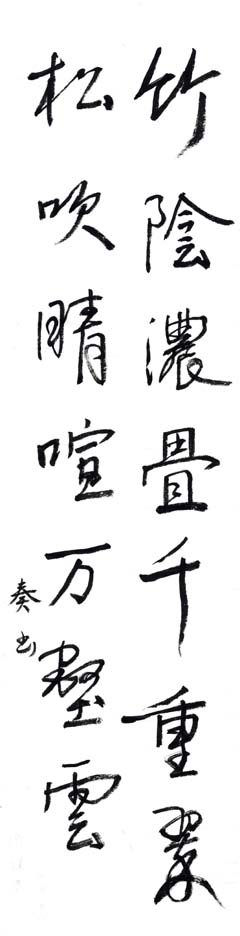 竹陰濃畳千重翠
松吹晴喧万壑雲
奏书